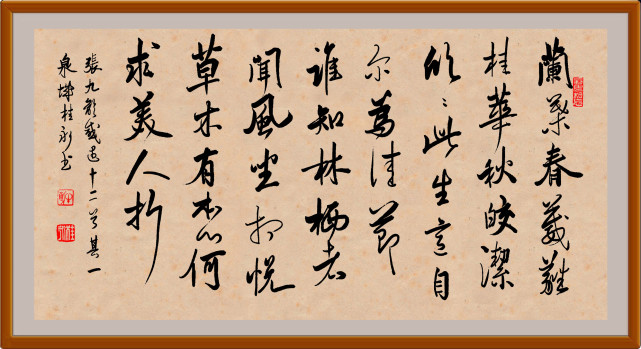 蘭葉春葳蕤
桂華秋皎潔
欣〻此生意自
尔為佳節
誰知林栖者
聞風坐相悅
草木有本心何
求美人折
張九齡感遇十二首其一